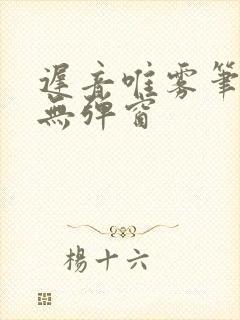 遲音唯雾筆
無弹窗
楊十六